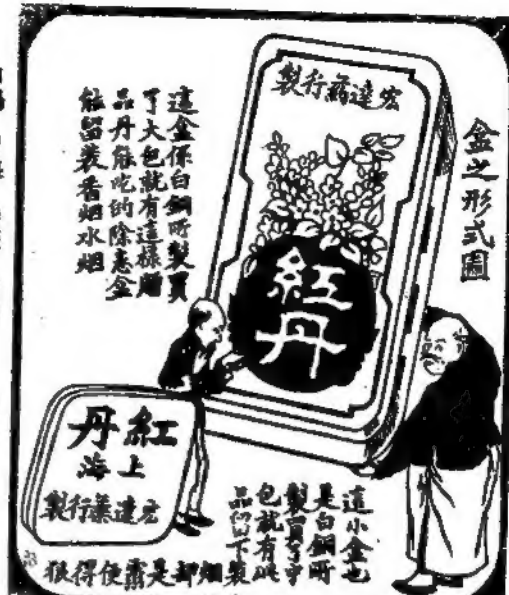 盒之形式圖
宏達葯行製
紅丹
這盒係白銅所製買
了大包就有這樣贈
品丹能吃的除恙盒
能留裝香烟水烟
紅丹
上海
宏達葯行製
這小盒也
是白銅所
製買了中
包就有此
品留下裝
烟却是需便得很